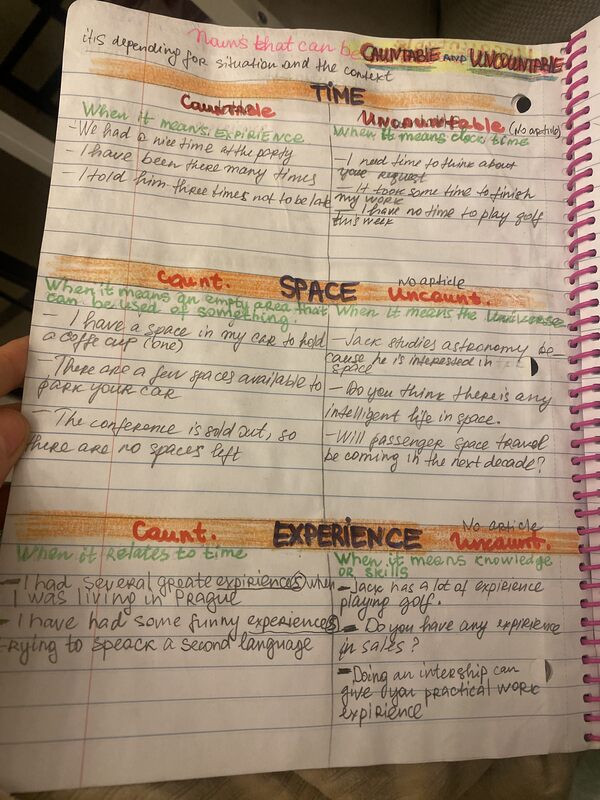 Nouns that can be COUNTABLE AND UNCOUNTABLE
it is depending for situation and the context
TIME
Countable
Uncountable (No article)
When it means EXPERIENCE
- We had a nice time at the party
- I have been there many times
- I told him three times not to be late
When it means clock time
- I need time to think about
your request
- It took some time to finish
my work
- I have no time to play golf
this week
SPACE
Count.
No article
Uncount.
When it means an empty area that
can be used of something.
- I have a space in my car to hold
a coffe cup (one)
- There are a few spaces available to
park your car
- The conference is sold out, so
there are no spaces left
When it means the Universe
- Jack studies astronomy be-
cause he is interested in
space
- Do you think there is any
intelligent life in space.
- Will passenger space travel
be coming in the next decade?
EXPERIENCE
Count.
No article
Uncount.
When it relates to time
- I had several greate expiriences when
I was living in Prague
- I have had some funny experiences
trying to speack a second language
When it means knowledge
or skills
- Jack has a lot of expierence
playing golf.
- Do you have any expirience
in sales?
- Doing an intership can
give you practical work
expirience